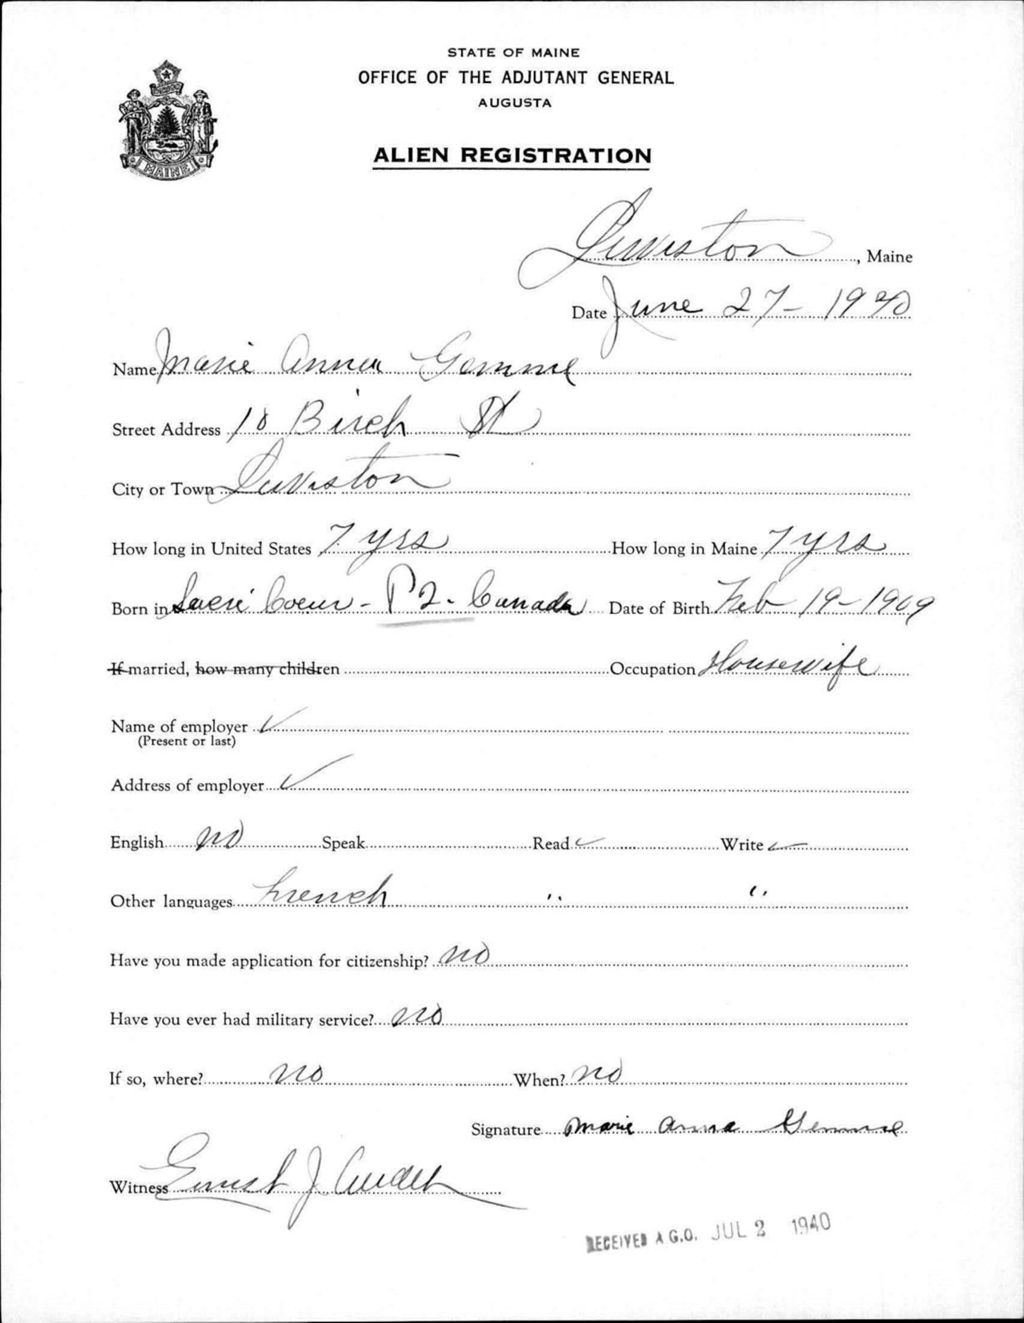 STATE OF MAINE
OFFICE OF THE ADJUTANT GENERAL
AUGUSTA
MAINE
ALIEN REGISTRATION
Lewiston, Maine
Date June 27 - 1940
Name Marie Anna Gemme
Street Address 18 Birch St
City or Town Lewiston
How long in United States 7 yrs How long in Maine 7 yrs
Born in Sacré Coeur - P Q - Canada Date of Birth Feb - 19 - 1909
If married, how many children Occupation Housewife
Name of employer ✓
(Present or last)
Address of employer ✓
English no Speak Read ✓ Write ✓
Other languages French " "
Have you made application for citizenship? no
Have you ever had military service? no
If so, where? no When? no
Signature Marie Anna Gemme
Witness Ernest J. Audet
RECEIVED A.G.O. JUL 2 1940